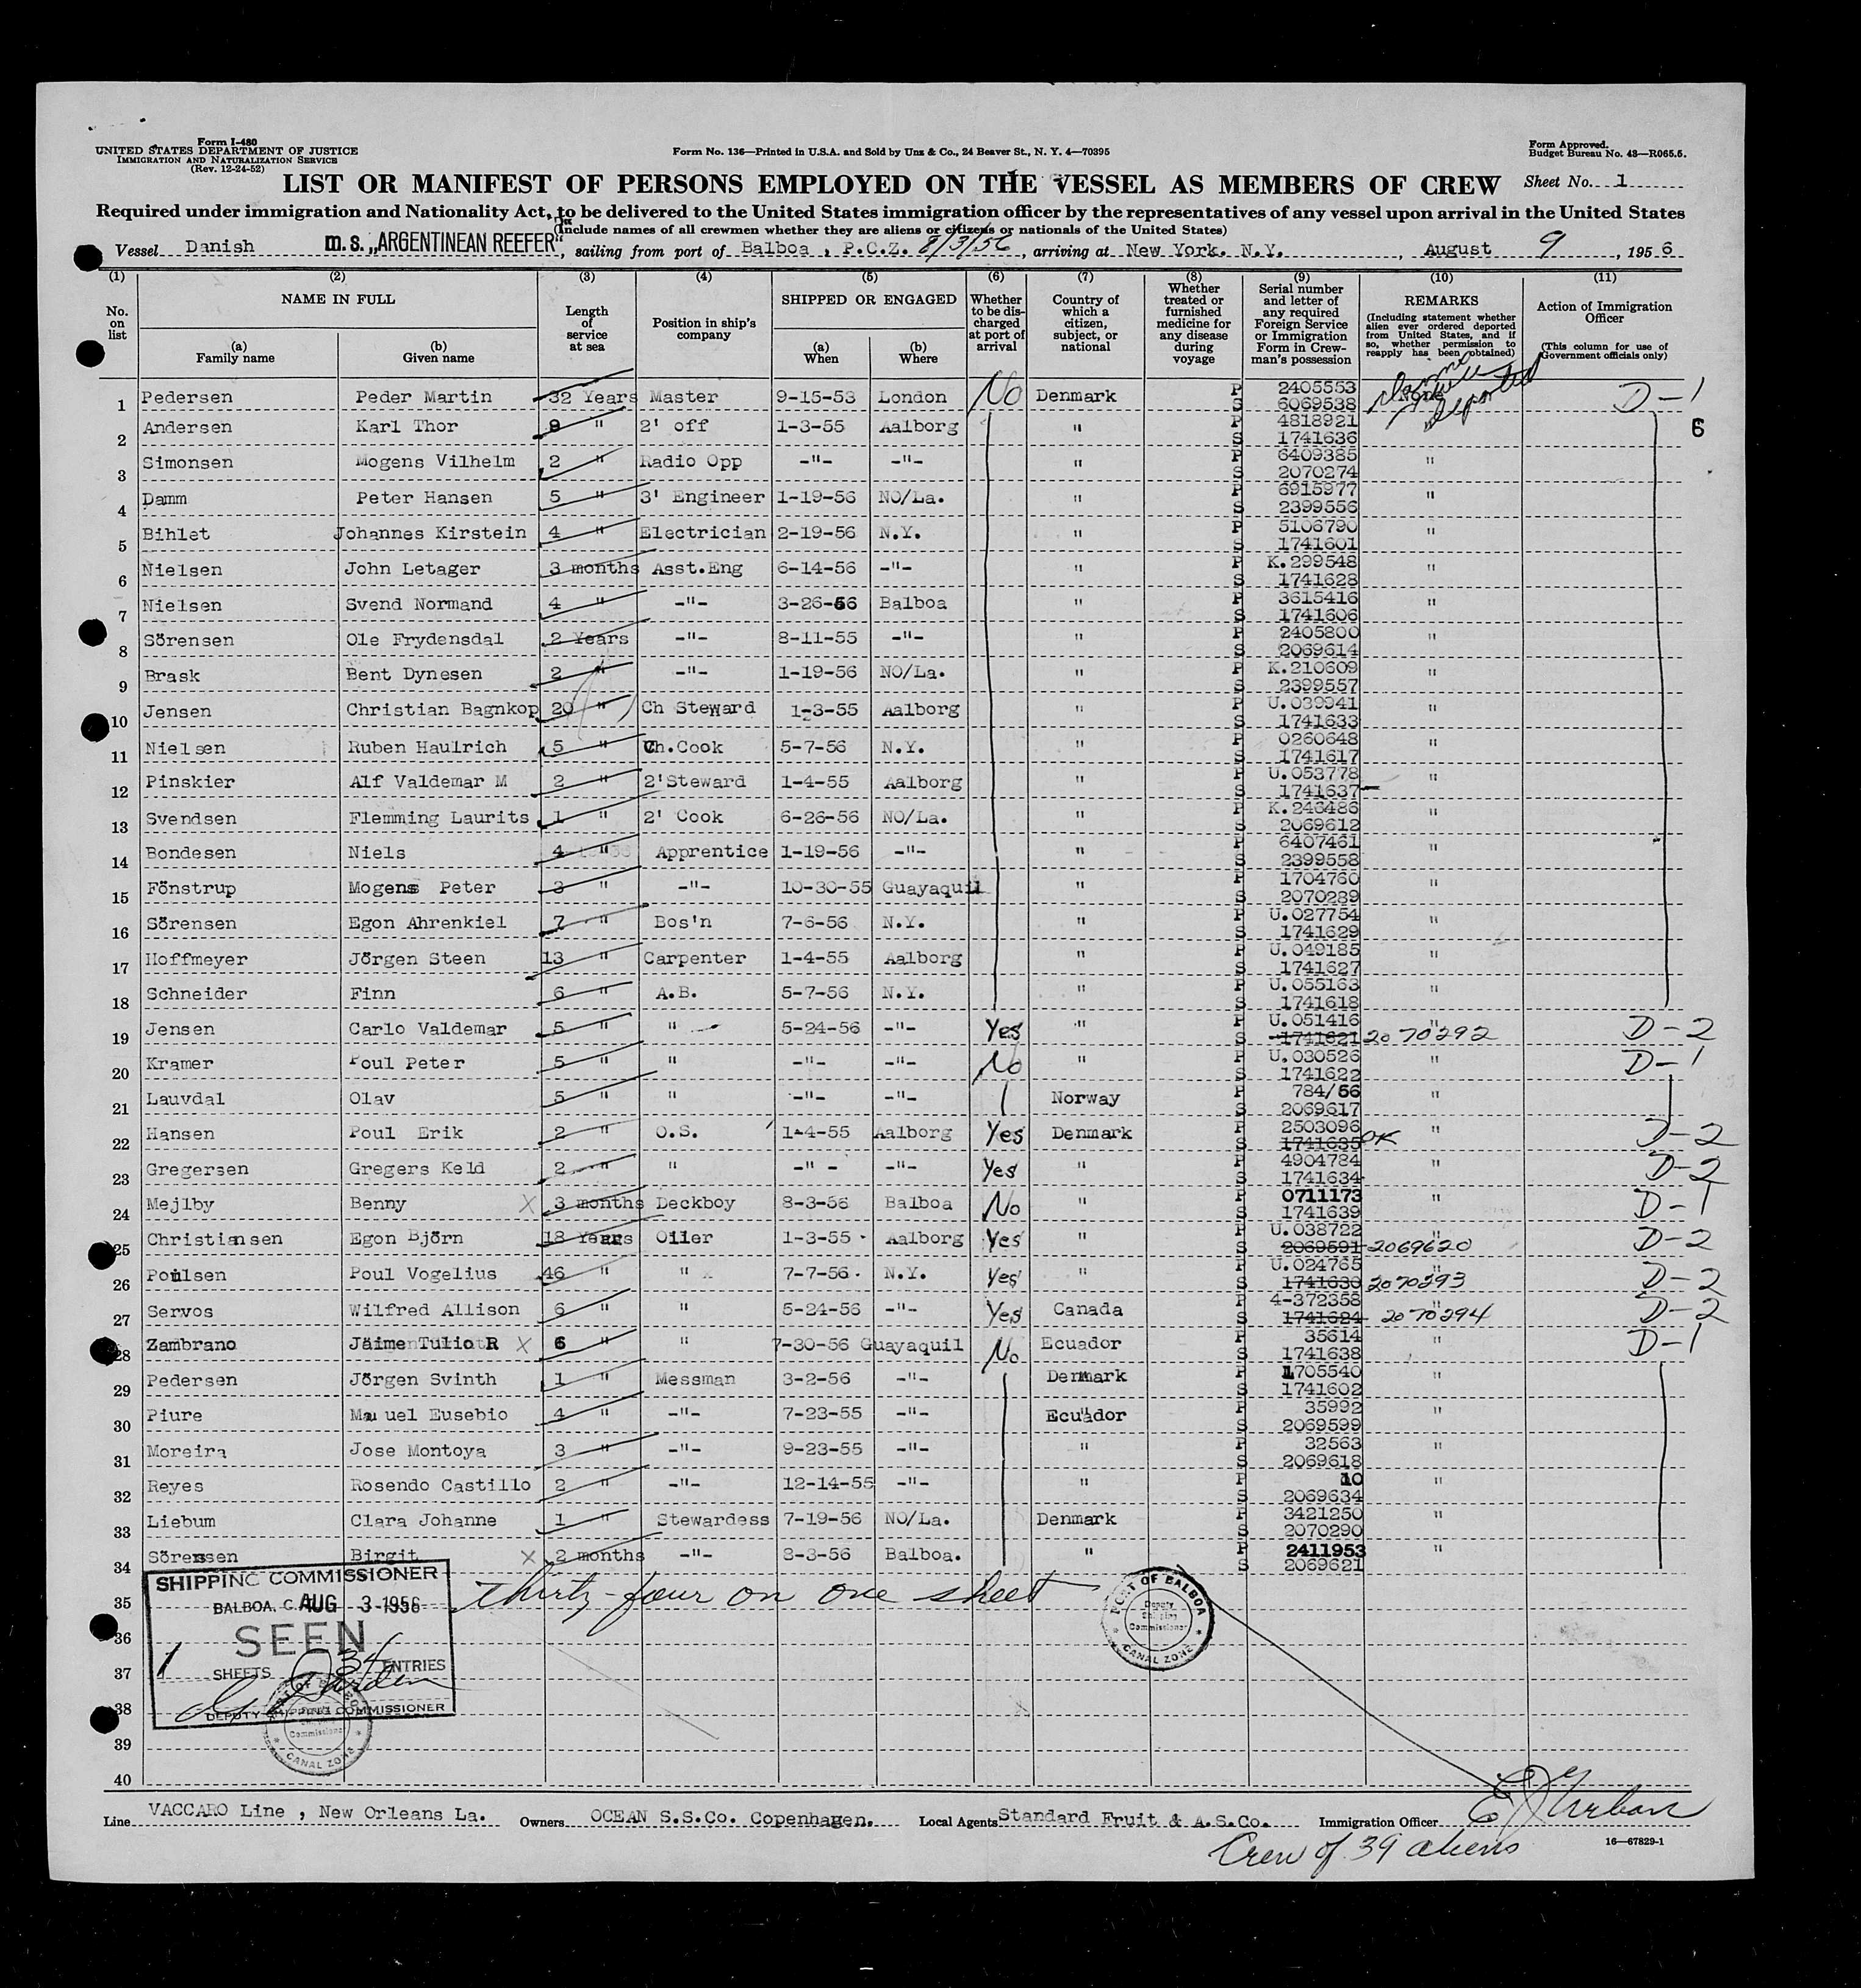 Form I-480
UNITED STATES DEPARTMENT OF JUSTICE
IMMIGRATION AND NATURALIZATION SERVICE
(Rev. 12-24-52)
Form No. 136—Printed in U.S.A. and Sold by Unz & Co., 24 Beaver St., N. Y. 4—70395
Form Approved.
Budget Bureau No. 43—R065.5.
LIST OR MANIFEST OF PERSONS EMPLOYED ON THE VESSEL AS MEMBERS OF CREW Sheet No. 1
Required under immigration and Nationality Act, to be delivered to the United States immigration officer by the representatives of any vessel upon arrival in the United States
(Include names of all crewmen whether they are aliens or citizens or nationals of the United States)
Vessel Danish m.s. „ARGENTINEAN REEFER", sailing from port of Balboa , P.C.Z. 8/3/56, arriving at New York. N.Y., August 9, 1956
(1) (2) (3) (4) (5) (6) (7) (8) (9) (10) (11)
No. on list
NAME IN FULL
(a) Family name
(b) Given name
Length of service at sea
Position in ship's company
SHIPPED OR ENGAGED
(a) When
(b) Where
Whether to be discharged at port of arrival
Country of which a citizen, subject, or national
Whether treated or furnished medicine for any disease during voyage
Serial number and letter of any required Foreign Service or Immigration Form in Crewman's possession
REMARKS
(Including statement whether alien ever ordered deported from United States, and if so, whether permission to reapply has been obtained)
Action of Immigration Officer
(This column for use of Government officials only)
1 Pedersen Peder Martin 32 Years Master 9-15-53 London No Denmark P 2405553 S 6069538 None deported D-1
2 Andersen Karl Thor 9 " 2' off 1-3-55 Aalborg " P 4818921 S 1741636 " 6
3 Simonsen Mogens Vilhelm 2 " Radio Opp -"- -"- " P 6409385 S 2070274 "
4 Damm Peter Hansen 5 " 3' Engineer 1-19-56 NO/La. " P 6915977 S 2399556 "
5 Bihlet Johannes Kirstein 4 " Electrician 2-19-56 N.Y. " P 5106790 S 1741601 "
6 Nielsen John Letager 3 months Asst.Eng 6-14-56 -"- " P K.299548 S 1741628 "
7 Nielsen Svend Normand 4 " -"- 3-26-56 Balboa " P 3615416 S 1741606 "
8 Sörensen Ole Frydensdal 2 Years -"- 8-11-55 -"- " P 2405800 S 2069614 "
9 Brask Bent Dynesen 2 " -"- 1-19-56 NO/La. " P K.210609 S 2399557 "
10 Jensen Christian Bagnkop 20 " Ch Steward 1-3-55 Aalborg " P U.039941 S 1741633 "
11 Nielsen Ruben Haulrich 5 " Ch.Cook 5-7-56 N.Y. " P 0260648 S 1741617 "
12 Pinskier Alf Valdemar M 2 " 2'Steward 1-4-55 Aalborg " P U.053778 S 1741637 "
13 Svendsen Flemming Laurits 1 " 2' Cook 6-26-56 NO/La. " P K.246486 S 2069612 "
14 Bondesen Niels 4 " Apprentice 1-19-56 -"- " P 6407461 S 2399558 "
15 Fönstrup Mogens Peter 3 " -"- 10-30-55 Guayaquil " P 1704760 S 2070289 "
16 Sörensen Egon Ahrenkiel 7 " Bos'n 7-6-56 N.Y. " P U.027754 S 1741629 "
17 Hoffmeyer Jörgen Steen 13 " Carpenter 1-4-55 Aalborg " P U.049185 S 1741627 "
18 Schneider Finn 6 " A.B. 5-7-56 N.Y. " P U.055163 S 1741618 "
19 Jensen Carlo Valdemar 5 " " 5-24-56 -"- Yes " P U.051416 S 1741621 2070292 " D-2
20 Kramer Poul Peter 5 " " -"- -"- No " P U.030526 S 1741622 " D-1
21 Lauvdal Olav 5 " " -"- -"- Norway P 784/56 S 2069617 "
22 Hansen Poul Erik 2 " O.S. 1-4-55 Aalborg Yes Denmark P 2503096 S 1741635 OK " D-2
23 Gregersen Gregers Keld 2 " " -"- -"- Yes " P 4904784 S 1741634 " D-2
24 Mejlby Benny X 3 months Deckboy 8-3-56 Balboa No " P 0711173 S 1741639 " D-1
25 Christiansen Egon Björn 18 Years Oiler 1-3-55 Aalborg Yes " P U.038722 S 2069591 2069620 " D-2
26 Poulsen Poul Vogelius 46 " " 7-7-56 N.Y. Yes " P U.024765 S 1741630 2070293 " D-2
27 Servos Wilfred Allison 6 " " 5-24-56 -"- Yes Canada P 4-372358 S 1741624 2070294 " D-2
28 Zambrano Jaime Tulio R X 6 " " 7-30-56 Guayaquil No Ecuador P 35614 S 1741638 " D-1
29 Pedersen Jörgen Svinth 1 " Messman 3-2-56 -"- Denmark P 1705540 S 1741602 "
30 Piure Manuel Eusebio 4 " -"- 7-23-55 -"- Ecuador P 35992 S 2069599 "
31 Moreira Jose Montoya 3 " -"- 9-23-55 -"- " P 32563 S 2069618 "
32 Reyes Rosendo Castillo 2 " -"- 12-14-55 -"- " P 10 S 2069634 "
33 Liebum Clara Johanne 1 " Stewardess 7-19-56 NO/La. Denmark P 3421250 S 2070290 "
34 Sörensen Birgit X 2 months -"- 8-3-56 Balboa. " P 2411953 S 2069621 "
35 Thirty-four on one sheet
36
37
38
39
40
SHIPPING COMMISSIONER
BALBOA, C. AUG 3-1956
SEEN
1 SHEETS 34 ENTRIES
DEPUTY SHIPPING COMMISSIONER
PORT OF BALBOA
Deputy Shipping Commissioner
CANAL ZONE
PORT OF BALBOA
Deputy Shipping Commissioner
CANAL ZONE
Line VACCARO Line , New Orleans La. Owners OCEAN S.S.Co. Copenhagen. Local Agents Standard Fruit & A.S.Co. Immigration Officer E J Urban
Crew of 39 aliens
16—67829-1